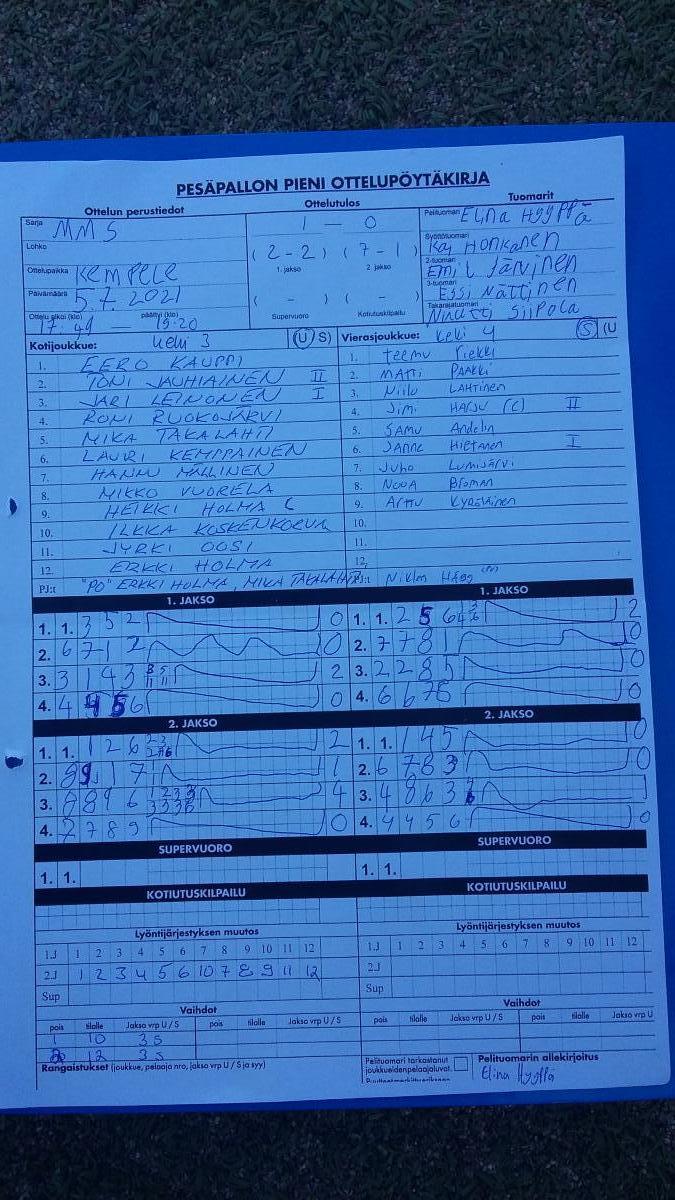 PESÄPALLON PIENI OTTELUPÖYTÄKIRJA
Ottelun perustiedot
Sarja MMS
Lohko
Ottelupaikka KEMPELE
Päivämäärä 5.7.2021
Ottelu alkoi (klo) päättyi (klo)
17:49 19:20
Ottelutulos
1 - 0
(2-2) (7-1)
1. jakso 2. jakso
( - ) ( - )
Supervuoro Kotiutuskilpailu
Tuomarit
Pelituomari Elina Hyyppä
Syöttötuomari Kaj Honkanen
2-tuomari Emil Järvinen
3-tuomari Essi Nättinen
Takarajatuomari Siipola
Kotijoukkue: Keki 3 (U) S)
1. EERO KAUPPI
2. TONI JAUHIAINEN II
3. JARI LEINONEN I
4. RONI RUOKOJÄRVI
5. MIKA TAKALAHTI
6. LAURI KEMPPAINEN
7. HANNU MÄLLINEN
8. MIKKO VUORELA
9. HEIKKI HOLMA C
10. ILKKA KOSKENKORVA
11. JYRKI OOSI
12. ERKKI HOLMA
PJ:t "PO" ERKKI HOLMA, MIKA TAKALAHTI
Vierasjoukkue: Keki 4 (S) (U
1. Teemu Piekki
2. Matti
3. Niilo Lahtinen
4. Jimi Harju (C) II
5. Samu Andelin
6. Janne Hietanen I
7. Juho Lumijärvi
8. Nooa Broman
9. Arttu
10.
11.
12.
PJ:t Niklas Hägg
1. JAKSO
1. 1. 3 5 2 0
2. 6 7 1 2 0
3. 3 1 4 3 2
4. 4 4 5 6 0
1. JAKSO
1. 1. 2 5 6 4 2
2. 7 7 8 1 0
3. 2 2 8 5 0
4. 6 6 7 8 0
2. JAKSO
1. 1. 1 2 6 2
2. 8 9 1 7 1
3. 8 8 9 6 4
4. 2 7 8 9 0
2. JAKSO
1. 1. 1 4 5 0
2. 6 7 8 3 0
3. 4 8 6 3 1
4. 4 4 5 6 0
SUPERVUORO
1. 1.
SUPERVUORO
1. 1.
KOTIUTUSKILPAILU
KOTIUTUSKILPAILU
Lyöntijärjestyksen muutos
1.J 1 2 3 4 5 6 7 8 9 10 11 12
2.J 1 2 3 4 5 6 10 7 8 9 11 12
Sup
Lyöntijärjestyksen muutos
1.J 1 2 3 4 5 6 7 8 9 10 11 12
2.J
Sup
Vaihdot
pois tilalle Jakso vrp U / S pois tilalle Jakso vrp U / S
1 10 3 S
12 3 S
Vaihdot
pois tilalle Jakso vrp U / S pois tilalle Jakso vrp U
Rangaistukset (joukkue, pelaaja nro, jakso vrp U / S ja syy)
Pelituomari tarkastanut
joukkueiden pelaajaluvat.
Pelituomarin allekirjoitus
Elina Hyyppä